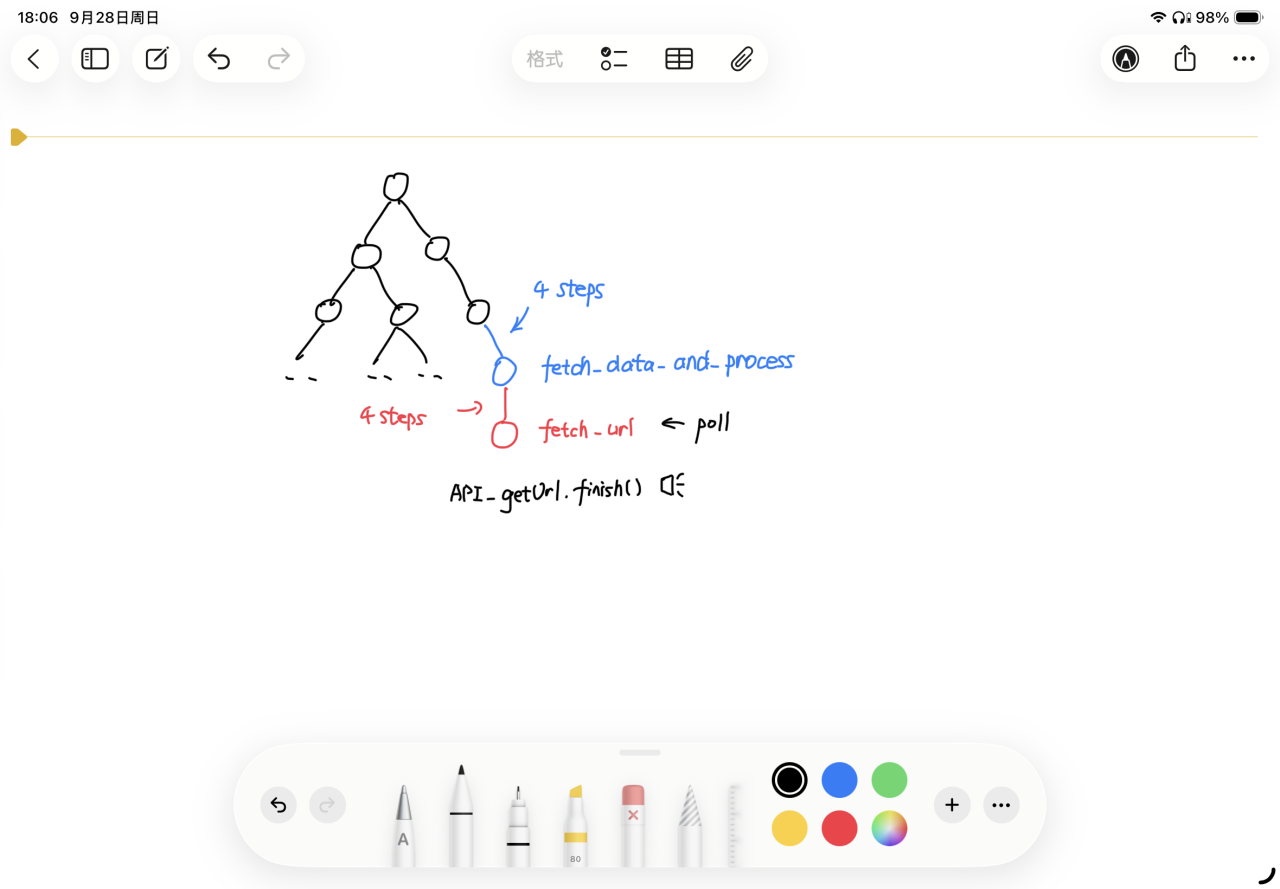 18:06 9月28日周日
98%
格式
4 steps
fetch_data_and_process
4 steps
fetch_url ← poll
API_getUrl.finish()
A
80